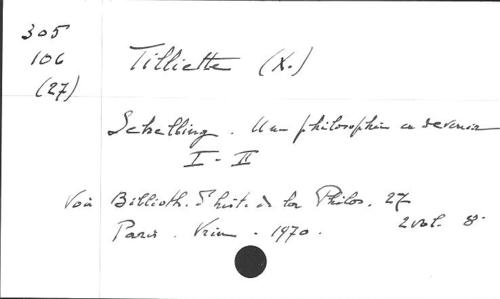 305
106
(27)
Tilliette (X.)
Schelling. Une philosophie en devenir
I - II
Voir Biblioth. d'hist. de la Philos. 27
Paris. Vrin. 1970. 2 vol. 8°